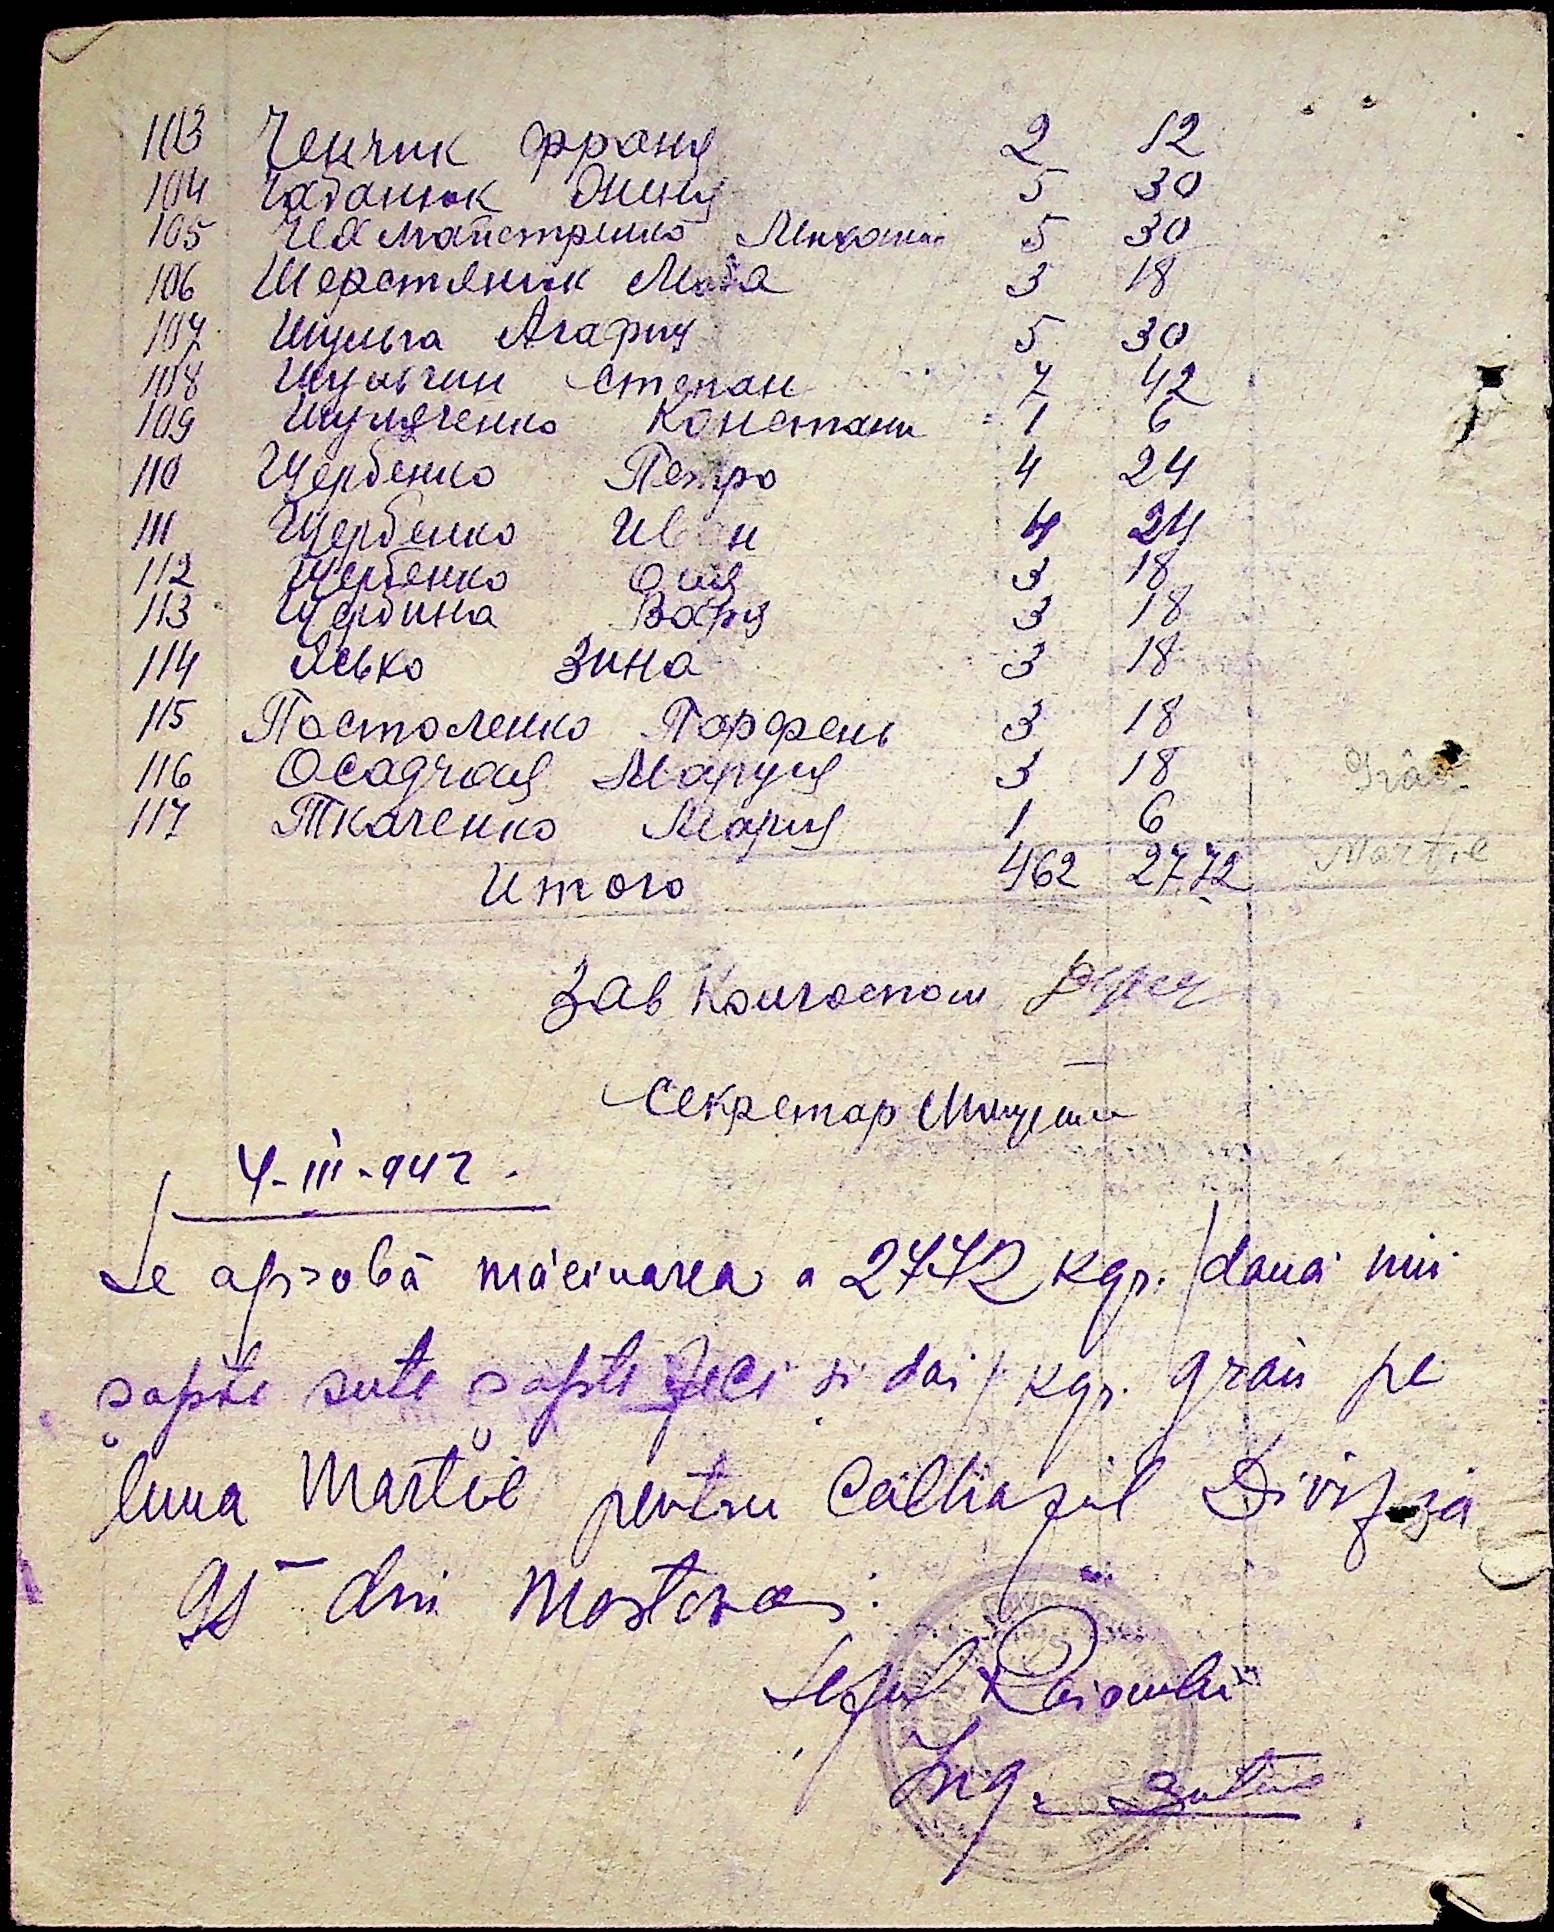 103 Ченчик Франя 2 12
104 Чабанюк Янина 5 30
105 5 30
106 Шерстянюк Мотя 3 18
107 Шульга Агафия 5 30
108 Шульгин Степан 7 42
109 Шуляченко Констант 1 6
110 Щербенко Петро 4 24
111 Щербенко Иван 4 24
112 Щербенко Оля 3 18
113 Щербина Варя 3 18
114 Ясько Зина 3 18
115 Постоленко Парфень 3 18
116 Осадчая Маруся 3 18
117 Ткаченко Мария 1 6
Grâu
Martie
Итого 462 2772
Зав Колгоспом
Секретар
4-III-942.
Se aprobă măcinarea a 2772 kgr. /două mii
șapte sute șapte zeci și doi/ kgr. grâu pe
luna Martie pentru Colhazul Divizia
95 din Mostovoi.
Șeful Raionului
Ing.